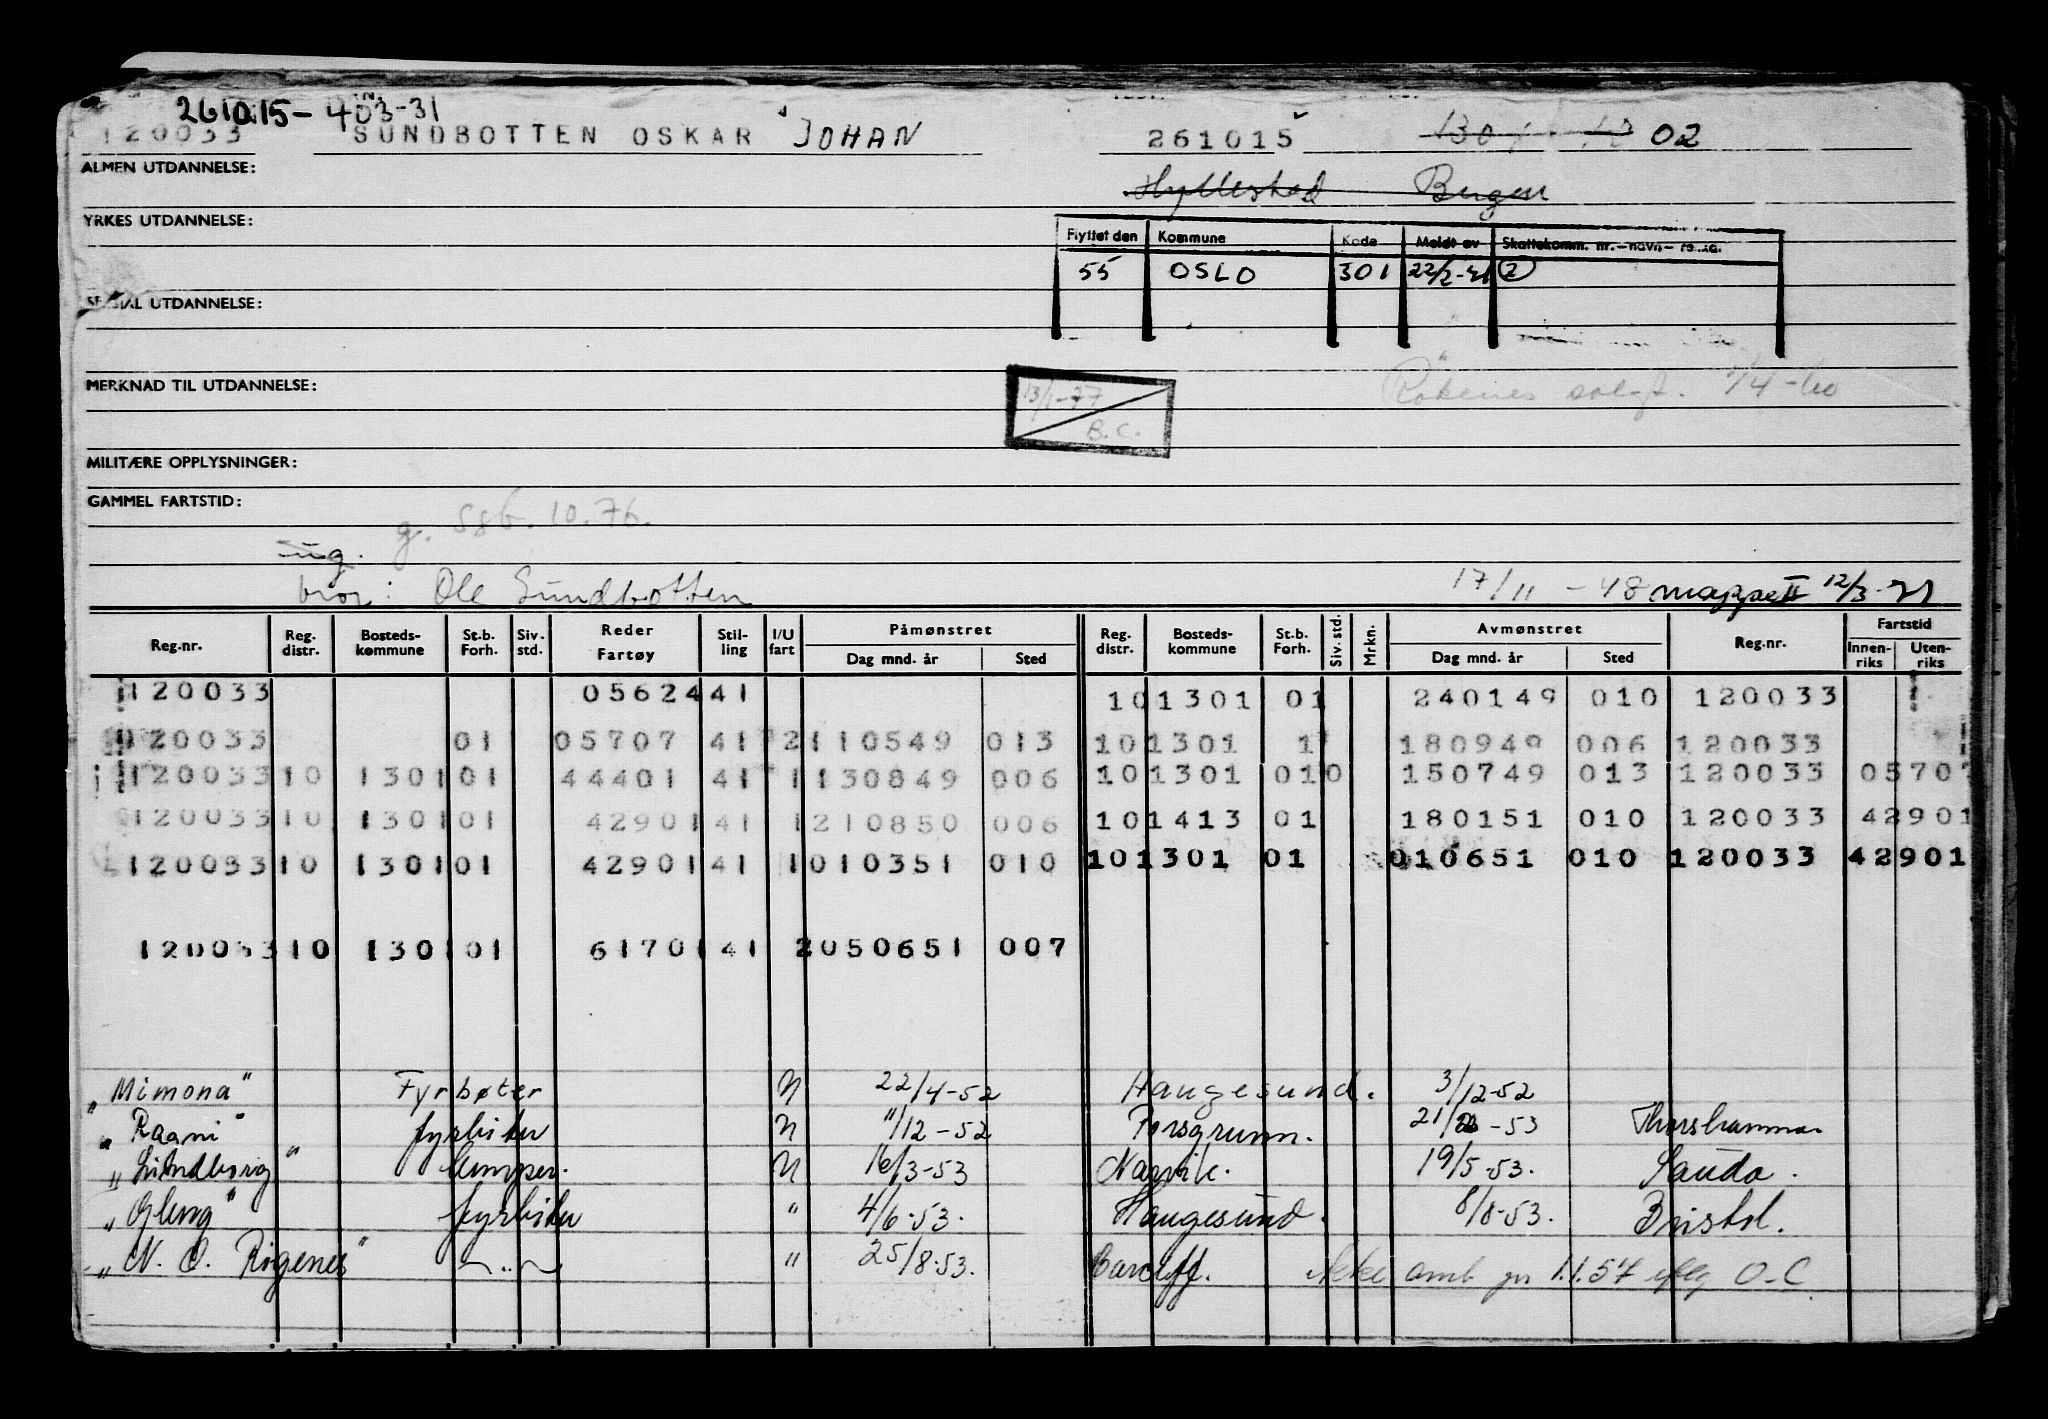 261015-403-31
120033 SUNDBOTTEN OSKAR JOHAN 261015 02
ALMEN UTDANNELSE: Hyllestad Bergen
YRKES UTDANNELSE:
Flyttet den Kommune Kode Meldt av Skattekomm. nr.-navn-
55 OSLO 301 22/2-71 2
UTDANNELSE:
MERKNAD TIL UTDANNELSE: 13/1-77 solgt. 1/4-60
B.C.
MILITÆRE OPPLYSNINGER:
GAMMEL FARTSTID:
g. 10.76.
ug.
bror: Ole Sundbotten 17/11-48 mappe II 12/3-71
Reg.nr. Reg. distr. Bosteds-kommune St.b. Forh. Siv. std. Reder Fartøy Stil-ling I/U fart Påmønstret Dag mnd. år Sted Reg. distr. Bosteds-kommune St.b. Forh. Siv. std. Mrkn. Avmønstret Dag mnd. år Sted Reg.nr. Fartstid Innen-riks Uten-riks
120033 05624 41 10 1301 01 240149 010 120033
120033 01 05707 41 2 110549 013 10 1301 1 180949 006 120033
120033 10 1301 01 44401 41 1 130849 006 10 1301 010 150749 013 120033 05707
120033 10 1301 01 42901 41 1 210850 006 10 1413 01 180151 010 120033 42901
120033 10 1301 01 42901 41 1 010351 010 10 1301 01 010651 010 120033 42901
120033 10 1301 01 61701 41 2 050651 007
"Mimona" Fyrbøter N 22/4-52 Haugesund. 3/12-52
"Ragni" fyrbøter N 11/12-52 Porsgrunn. 21/2-53 Thorshamn
"Lindborg" lemper. N 16/3-53 Narvik. 19/5-53. Sauda.
fyrbøter " 4/6-53. Haugesund. 8/8-53. Bristol.
"N. O. Rogenes" " 25/8-53. Cardiff. Ikke omb pr 1.1.57 iflg O-C